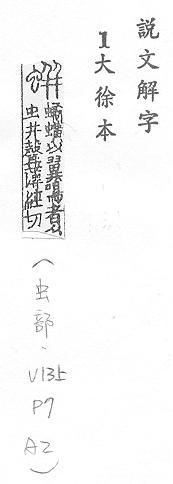 説文解字
1大徐本
以翼鳴者从
虫幷聲薄經切
(虫部、V13上 P7 A2)